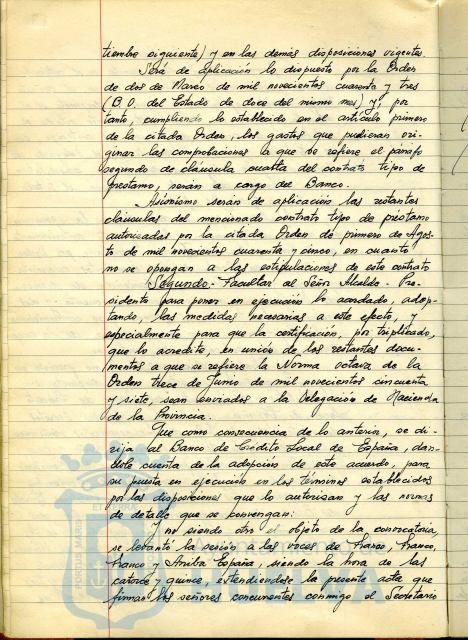 tiembre siguiente) y en las demás disposiciones vigentes.
Será de aplicación lo dispuesto por la Orden
de dos de Marzo de mil novecientos cuarenta y tres
(B.O. del Estado de doce del mismo mes) y, por
tanto, cumpliendo lo establecido en el artículo primero
de la citada Orden, los gastos que pudieran ori-
ginar las comprobaciones a que se refiere el párrafo
segundo de cláusula cuarta del contrato tipo de
préstamo, serán a cargo del Banco.
Asimismo serán de aplicación las restantes
cláusulas del mencionado contrato tipo de préstamo
autorizadas por la citada Orden de primero de Agos-
to de mil novecientos cuarenta y cinco, en cuanto
no se opongan a las estipulaciones de este contrato
Segundo.- Facultar al Señor Alcalde-Pre-
sidente para poner en ejecución lo acordado, adop-
tando, las medidas necesarias a este efecto, y
especialmente para que la certificación, por triplicado,
que lo acredite, en unión de los restantes docu-
mentos a que se refiere la Norma octava de la
Orden trece de Junio de mil novecientos cincuenta
y siete, sean enviados a la Delegación de Hacienda
de la Provincia.
Que como consecuencia de lo anterior, se di-
rija al Banco de Crédito Local de España, dan-
dole cuenta de la adopción de este acuerdo, para
su puesta en ejecución en los terminos establecidos
por las disposiciones que lo autorizan y las normas
de detalle que se convengan:
Y no siendo otro el objeto de la convocatoria,
se levantó la sesión a las voces de Franco, Franco,
Franco y Arriba España, siendo la hora de las
catorce y quince, extendiendose la presente acta que
firman los señores concurrentes conmigo el Secretario
PORTUS MARIS